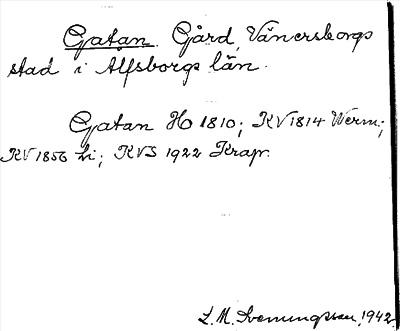 Gatan. Gård, Vänersborgs
stad i Älfsborgs län.
Gatan Ho 1810; KV 1814 Werm;
KV 1856 Li; KVS 1922 Krapr.
L. M. Svenungsson, 1942